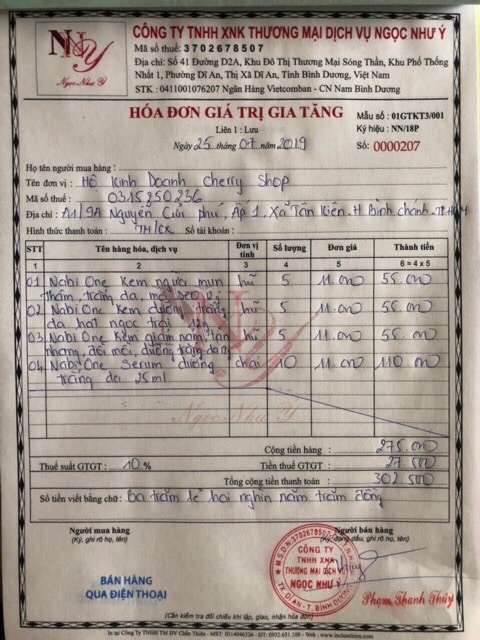 NNY
Ngọc Như Ý
CÔNG TY TNHH XNK THƯƠNG MẠI DỊCH VỤ NGỌC NHƯ Ý
Mã số thuế: 3702678507
Địa chỉ: Số 41 Đường D2A, Khu Đô Thị Thương Mại Sóng Thần, Khu Phố Thống
Nhất 1, Phường Dĩ An, Thị Xã Dĩ An, Tỉnh Bình Dương, Việt Nam
STK : 0411001076207 Ngân Hàng Vietcomban - CN Nam Bình Dương
HÓA ĐƠN GIÁ TRỊ GIA TĂNG
Mẫu số : 01GTKT3/001
Liên 1 : Lưu
Ký hiệu : NN/18P
Ngày 25 tháng 07 năm 2019
Số: 0000207
Họ tên người mua hàng :
Tên đơn vị : Hộ Kinh Doanh Cherry Shop
Mã số thuế : 0315850236
Địa chỉ : A1/9A Nguyễn Cửu Phú, Ấp 1, Xã Tân Kiên, H Bình Chánh, TP.HCM
Hình thức thanh toán : TM/CK Số tài khoản :
STT Tên hàng hóa, dịch vụ Đơn vị tính Số lượng Đơn giá Thành tiền
1 2 3 4 5 6 = 4 x 5
01 Nabi One Kem ngừa mụn hũ 5 11.000 55.000
thâm, trắng da, mờ sẹo 12g
02 Nabi One Kem dưỡng trắng hũ 5 11.000 55.000
da hạt ngọc trai 12g
03 Nabi One Kem giảm nám, tàn hũ 5 11.000 55.000
nhang, đồi mồi, dưỡng trắng da
04 Nabi One Serum dưỡng chai 10 11.000 110.000
trắng da 25ml
Ngọc Như Ý
Cộng tiền hàng : 275.000
Thuế suất GTGT : 10 % Tiền thuế GTGT : 27.500
Tổng cộng tiền thanh toán : 302.500
Số tiền viết bằng chữ: Ba trăm lẻ hai nghìn năm trăm đồng
Người mua hàng Người bán hàng
(Ký, ghi rõ họ, tên) (Ký, đóng dấu, ghi rõ họ, tên)
M.S.D.N:3702678507
CÔNG TY
TNHH XNK
THƯƠNG MẠI DỊCH VỤ
NGỌC NHƯ Ý
TX. DĨ AN - T. BÌNH DƯƠNG
BÁN HÀNG
QUA ĐIỆN THOẠI
Phạm Thanh Thúy
(Cần kiểm tra đối chiếu khi lập, giao, nhận hóa đơn)
In tại Công Ty TNHH TM DV Chân Thiện - MST: 0314046326 - ĐT: 0932.651.109 - Website: www.inchanthien.com